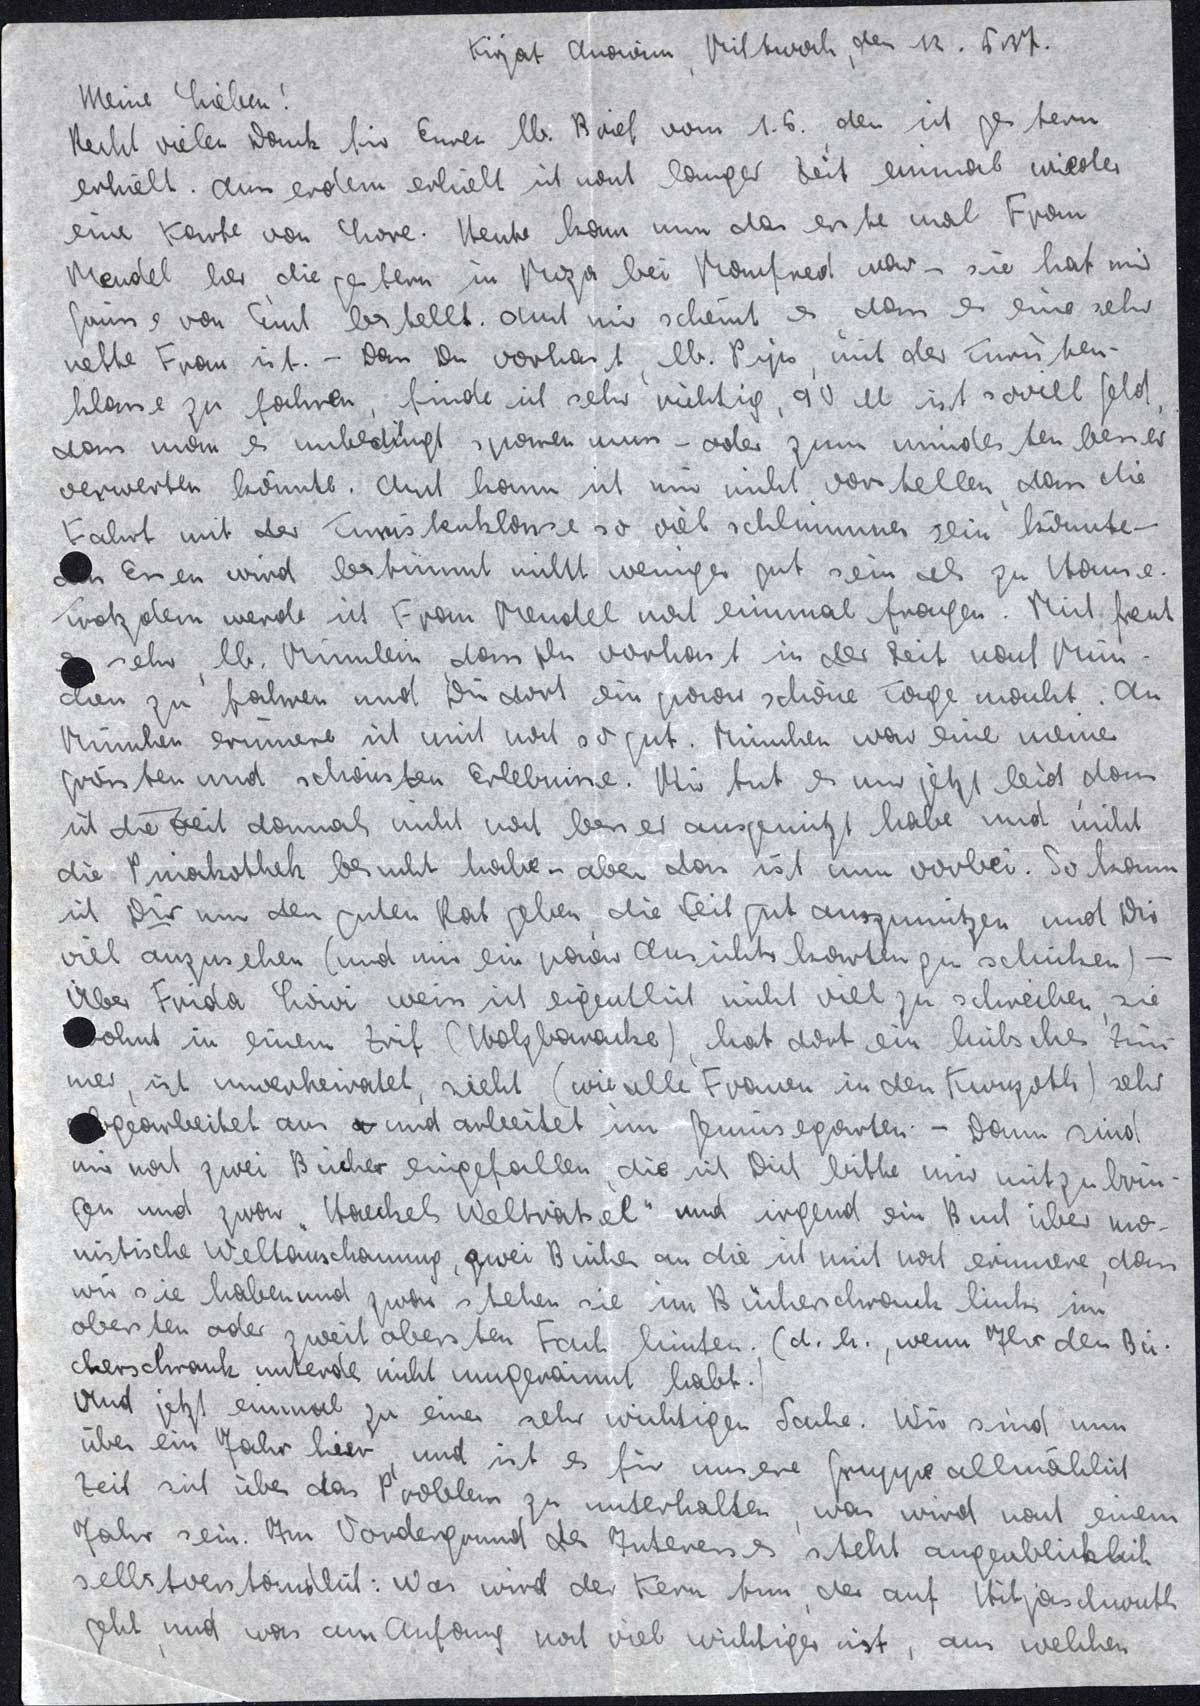 Kirjat Anowim, Mittwoch, den
Meine Lieben!
Recht vielen Dank für Euren lb. Brief vom 1.6. den ich gestern
erhielt. Ausserdem erhielt ich nach langer Zeit einmal wieder
eine Karte von Lore. Heute kam nun das erste mal Frau
Mendel her, die gestern in Moza bei Manfred war - sie hat mir
Grüsse von Euch bestellt. Auch mir scheint es, dass es eine sehr
nette Frau ist. - Dass Du vorhast, lb. Pips, mit der Turisten-
klasse zu fahren, finde ich sehr richtig, 90 M ist soviel Geld,
dass man es unbedingt sparen muss - oder zum mindesten besser
verwerten könnte. Auch kann ich mir nicht vorstellen, dass die
Fahrt mit der Turistenklasse so viel schlimmer sein könnte -
das Essen wird bestimmt nicht weniger gut sein als zu Hause.
Trotzdem werde ich Frau Mendel noch einmal fragen. Mich freut
es sehr, lb. Mümlein, dass Du vorhast in der Zeit nach Mün-
chen zu fahren und Dir dort ein paar schöne Tage machst. An
München erinnere ich mich noch so gut. München war eine meiner
grössten und schönsten Erlebnisse. Mir tut es nur jetzt leid, dass
ich die Zeit damals nicht noch besser ausgenützt habe und nicht
die Pinakothek besucht habe - aber das ist nun vorbei. So kann
ich Dir nur den guten Rat geben, die Zeit gut auszunützen und Dir
viel anzusehen (und mir ein paar Ansichtskarten zu schicken) -
Über Frida Löwi weiss ich eigentlich nicht viel zu schreiben, sie
wohnt in einem Zrif (Holzbaracke), hat dort ein hübsches Zim-
mer, ist unverheiratet, sieht (wie alle Frauen in den Kwuzoth) sehr
abgearbeitet aus und arbeitet im Gemüsegarten. - Dann sind
mir noch zwei Bücher eingefallen, die ich Dich bitte mir mitzubrin-
gen und zwar „Haeckels Welträtsel" und irgend ein Buch über mo-
nistische Weltanschauung, zwei Bücher an die ich mich noch erinnere, dass
wir sie haben und zwar stehen sie im Bücherschrank links im
obersten oder zweit obersten Fach hinten. (d.h., wenn Ihr den Bü-
cherschrank unterdes nicht umgeräumt habt.)
Und jetzt einmal zu einer sehr wichtigen Sache. Wir sind nun
über ein Jahr hier, und ist es für unsere Gruppe allmählich
Zeit sich über das Problem zu unterhalten, was wird nach einem
Jahr sein. Im Vordergrund des Interesses steht augenblicklich
selbstverständlich: Was wird der Kern tun, der auf Hitjaschwuth
geht, und was am Anfang noch viel wichtiger ist, aus welchen